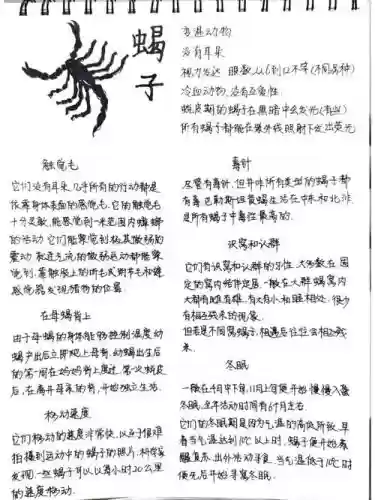 蝎子
变温动物
没有耳朵
视力发达 眼数从6到12不等(不同品种)
冷血动物,没有互食性
蜕皮期的蝎子在黑暗中会发光(有些)
所有蝎子都能在紫外线照射下发出荧光
触觉毛
它们没有耳朵,几乎所有的行动都是
依靠身体表面的感觉毛。它的触觉毛
十分灵敏,能感觉到一米范围内蟑螂
的活动 它们能察觉到极其微弱的
震动 就连气流的微弱运动都能察
觉到,
感觉器发现猎物的位置
在母蝎背上
由于母蝎的身体能够
蝎产出后立即爬上母背,幼蝎出生后
的第一周在妈妈背上度过,第一次蜕皮
后,在离开母亲的背,开始独立生活.
移动速度
它们移动的速度非常快,以至于很难
拍摄到运动中的蝎子的照片,科学家
发现,一些蝎子可以以每小时20公里
的速度移动.
毒针
尽管有毒针,但并非所有类型的蝎子都
有毒 巴勒斯坦黄蝎生活在中东和北非
是所有蝎子中毒性最高的.
识窝和认群
它们有识窝和认群的习性,大多数在固
定的窝内结伴定居,一般在大群蝎窝内
大都有雌有雄,有大有小,和睦相处,很少
有相互残杀的现象.
但若是不同窝蝎子,相遇后往往会相互残
杀.
冬眠
一般在4月中下旬,11月上旬便开始慢慢入蛰
冬眠,全年活动时间有6个月左右
它们的冬眠期是因为气温的高低所致,早
春当气温达到10℃以上时,蝎子便开始苏
醒复苏,出外活动寻食,当气温低于10℃时
便先后开始寻窝冬眠.